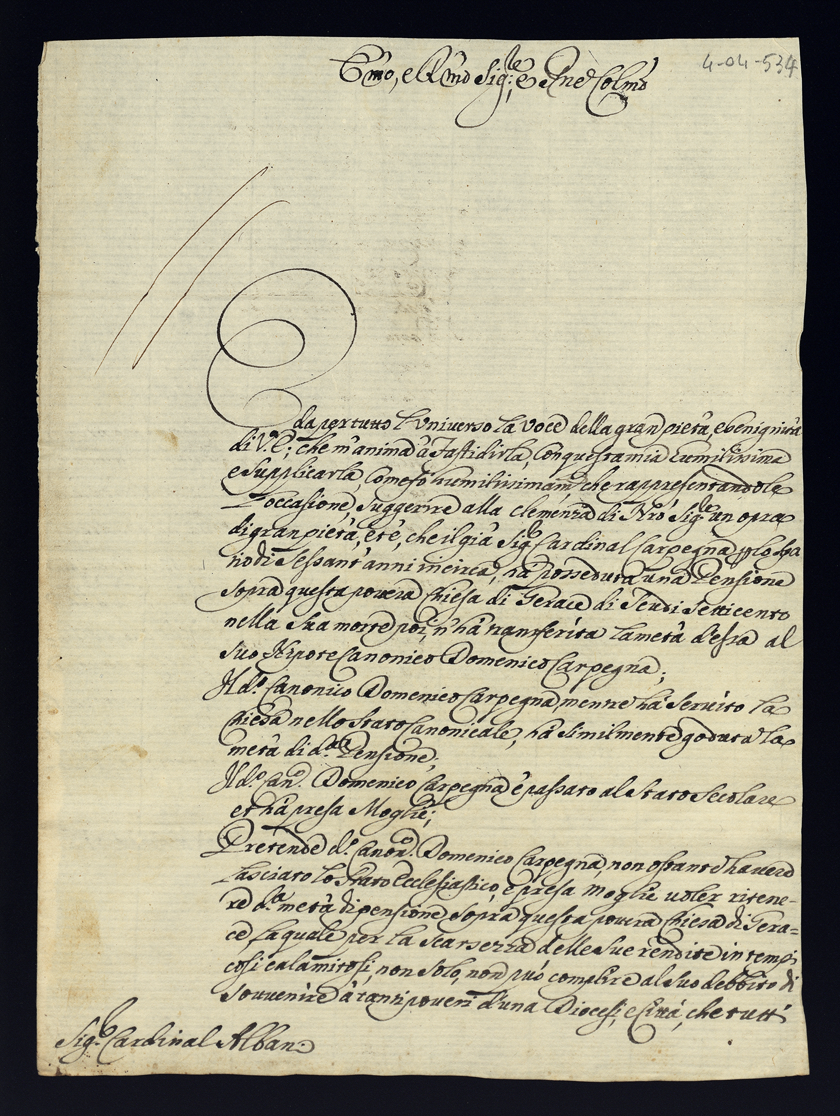 Emo, e Rmo Sigre, e Pne Colmo
4-04-534
E da per tutto l'Universo la voce della gran pietà, e benignità
di V. E; che m'anima à fastidirla, con questa mia humilissima
e supplicarla, come fò humilissimamte, che rappresentandole
l'occasione, suggerire alla clemenza di Nro Sigre un opra
di gran pietà, et è, che il già Sigr Cardinal Carpegna p lo spa
tio di sessant'anni in circa, hà posseduta una Pensione
sopra questa povera Chiesa di Gerace di Scudi Settecento
nella sua morte poi, n'hà transferita la metà d'essa al
suo Nipote Canonico Domenico Carpegna;
Il do Canonico Domenico Carpegna, mentre hà servito la
Chiesa nello Stato Canonicale, hà similmente goduta la
metà di da Pensione;
Il do Can. Domenico Carpegna è passato al Stato Secolare
et hà presa Moglie;
Pretende do Canon. Domenico Carpegna, non ostante d'havere
lasciato lo Stato Ecclesiastico, e presa moglie voler ritene-
re da metà di pensione sopra questa povera Chiesa di Gera=
ce, la quale per la scarsezza delle sue rendite in tempi
così calamitosi, non solo, non può complire al suo debbito di
souvenire à tanti poveri d'una Diocesi, e Città, che tutti
Sigr Cardinal Albani